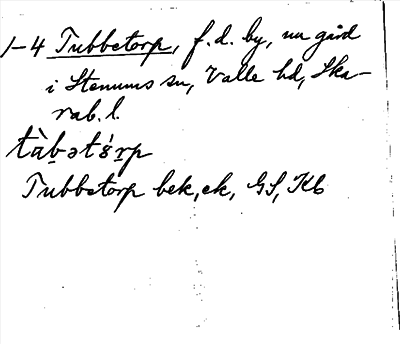 1-4 Tubbetorp, f.d. by, nu gård
i Stenums sn, Valle hd, Ska-
rab. l.
tàb̬ətŏ́rp
Tubbetorp bek, ek, GS, Kb